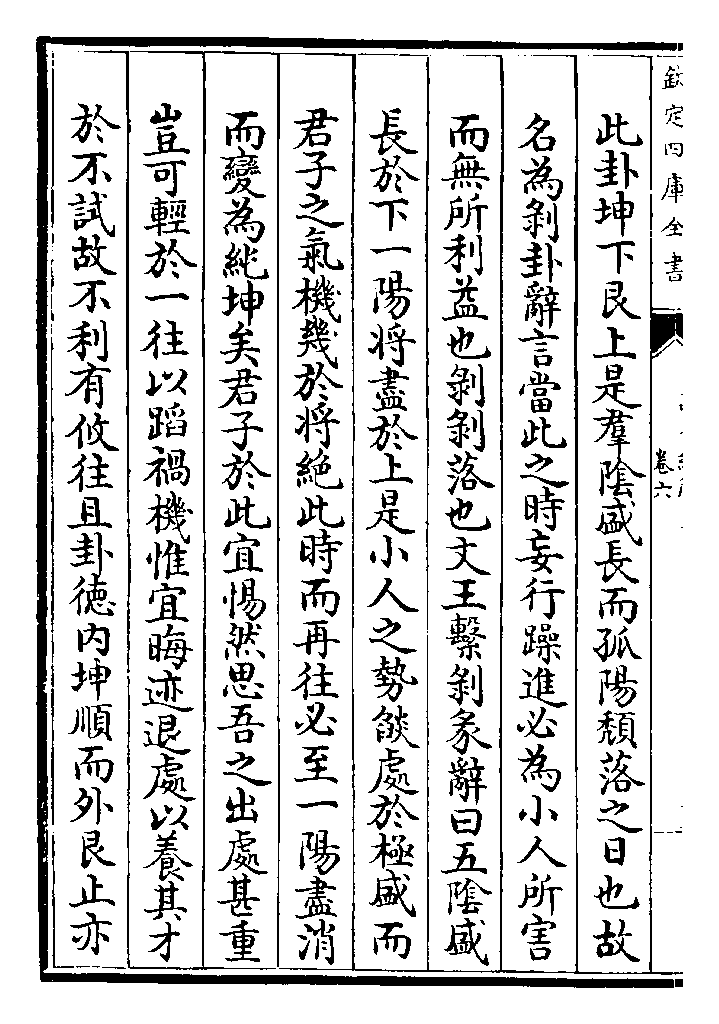 欽定四庫全書
卷六
此卦坤下艮上是羣陰盛長而孤陽頽落之日也故
名為剝卦辭言當此之時妄行躁進必為小人所害
而無所利益也剝剝落也文王繫剝彖辭曰五陰盛
長於下一陽將盡於上是小人之勢燄處於極盛而
君子之氣機幾於將絶此時而再往必至一陽盡消
而變為純坤矣君子於此宜惕然思吾之出處甚重
豈可輕於一往以蹈禍機惟宜晦迹退處以養其才
於不試故不利有攸往且卦德内坤順而外艮止亦